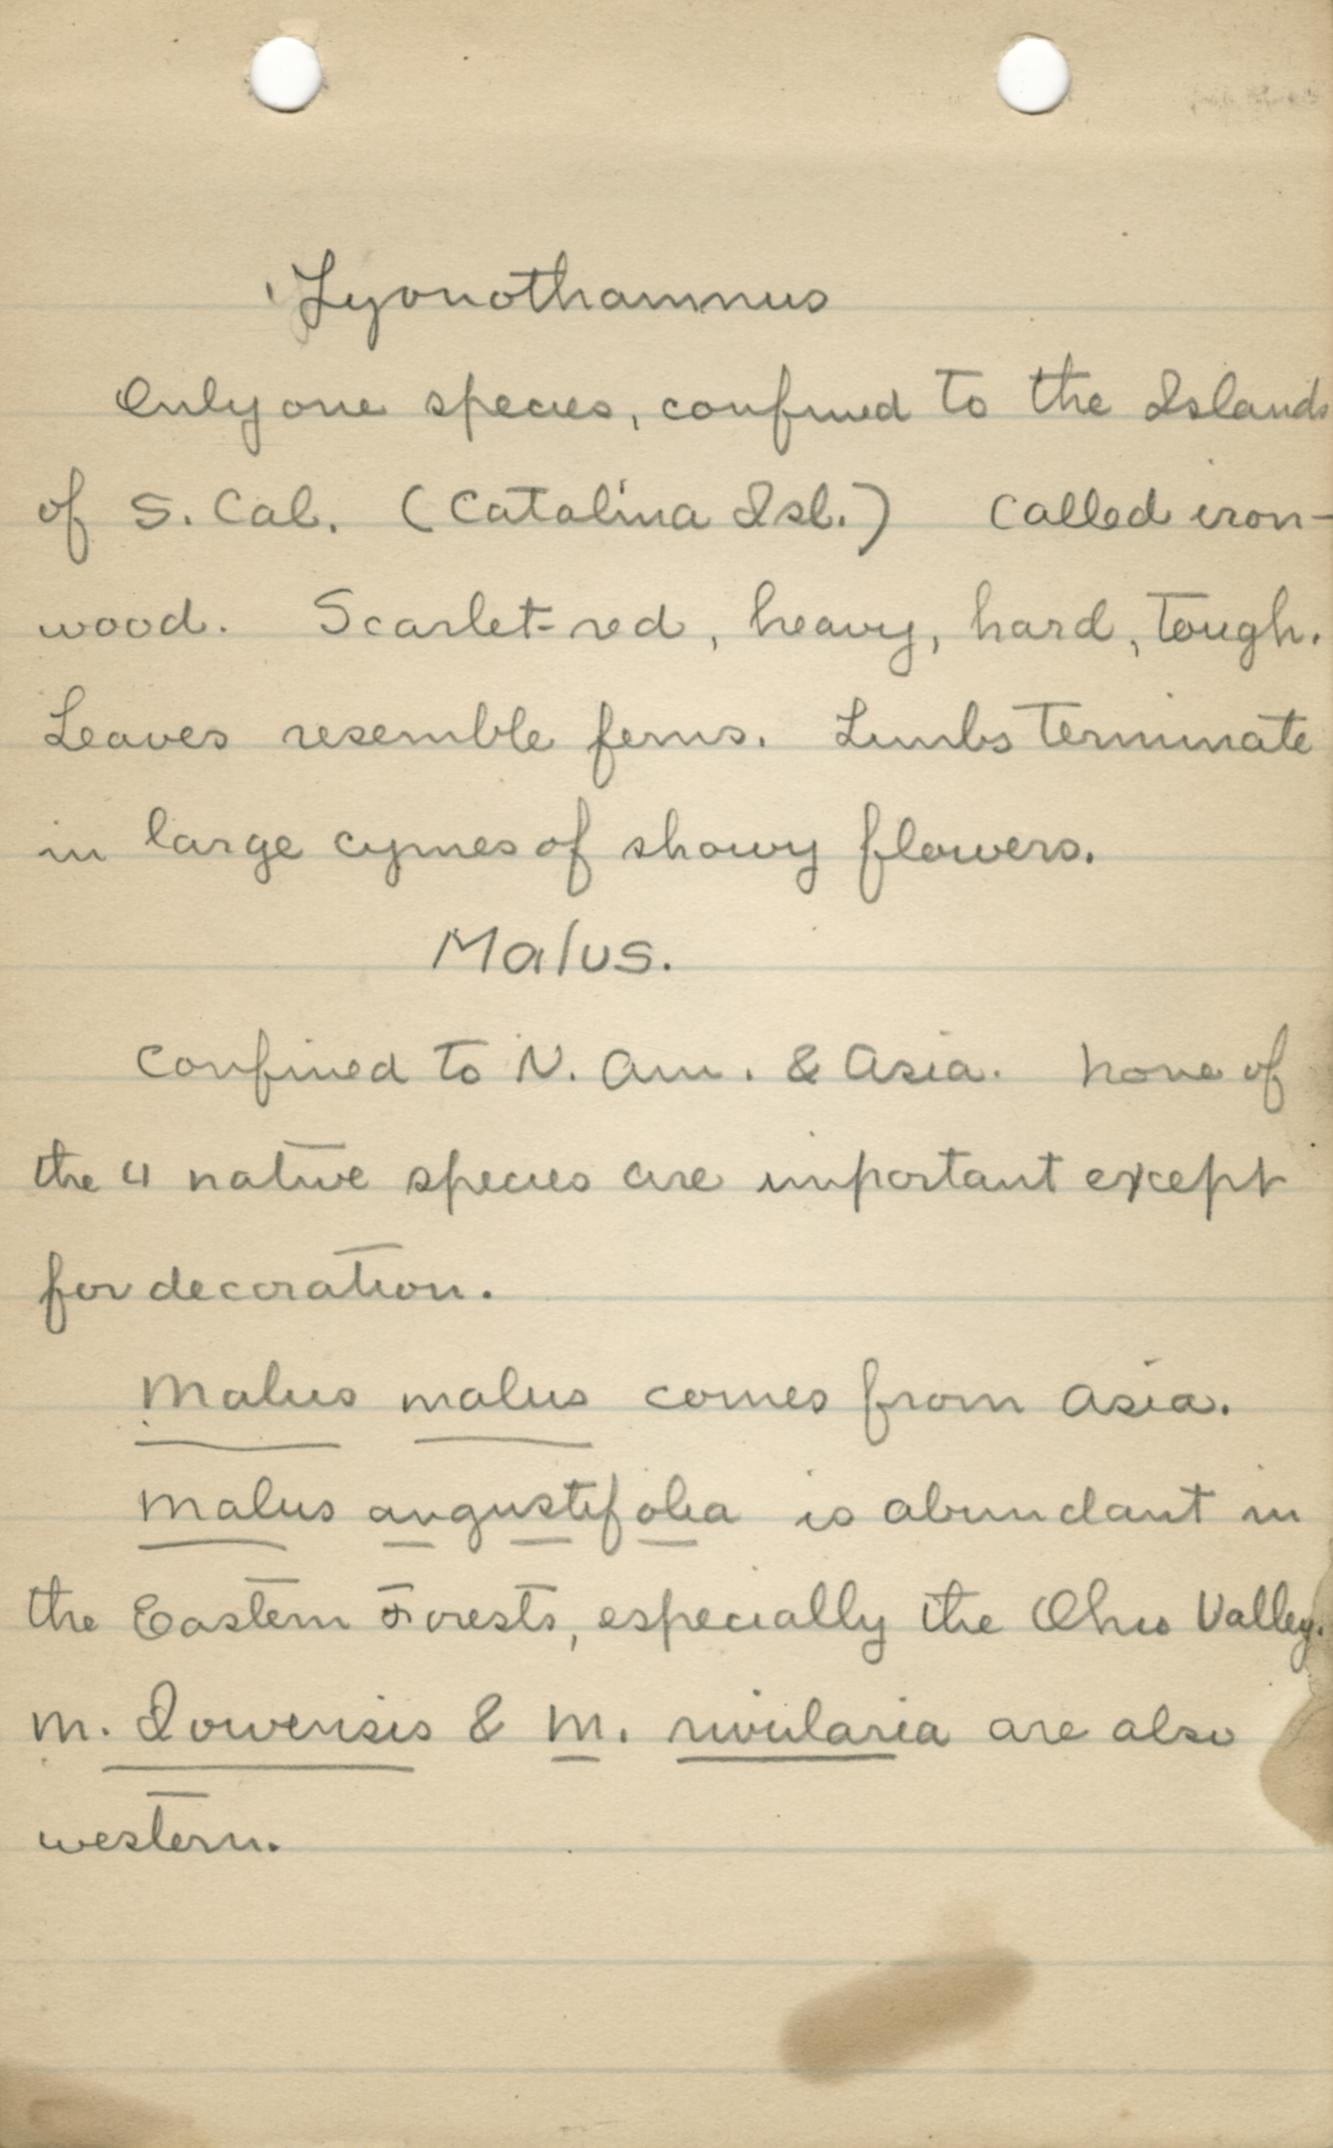 Lyonothamnus
Only one species, confined to the Islands
of S. Cal. (Catalina Isl.) Called iron-
wood. Scarlet-red, heavy, hard, tough.
Leaves resemble ferns. Limbs terminate
in large cymes of showy flowers.
Malus.
Confined to N. Am. & Asia. None of
the 4 native species are important except
for decoration.
Malus malus comes from Asia.
Malus angustifolia is abundant in
the Eastern Forests, especially the Ohio Valley.
M. Iowensis & M. rivularia are also
western.